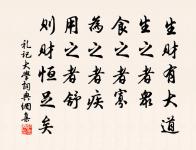 生財有大道
生之者眾
食之者寡
為之者疾
用之者舒
則財恒足矣
礼记大學詞典網集